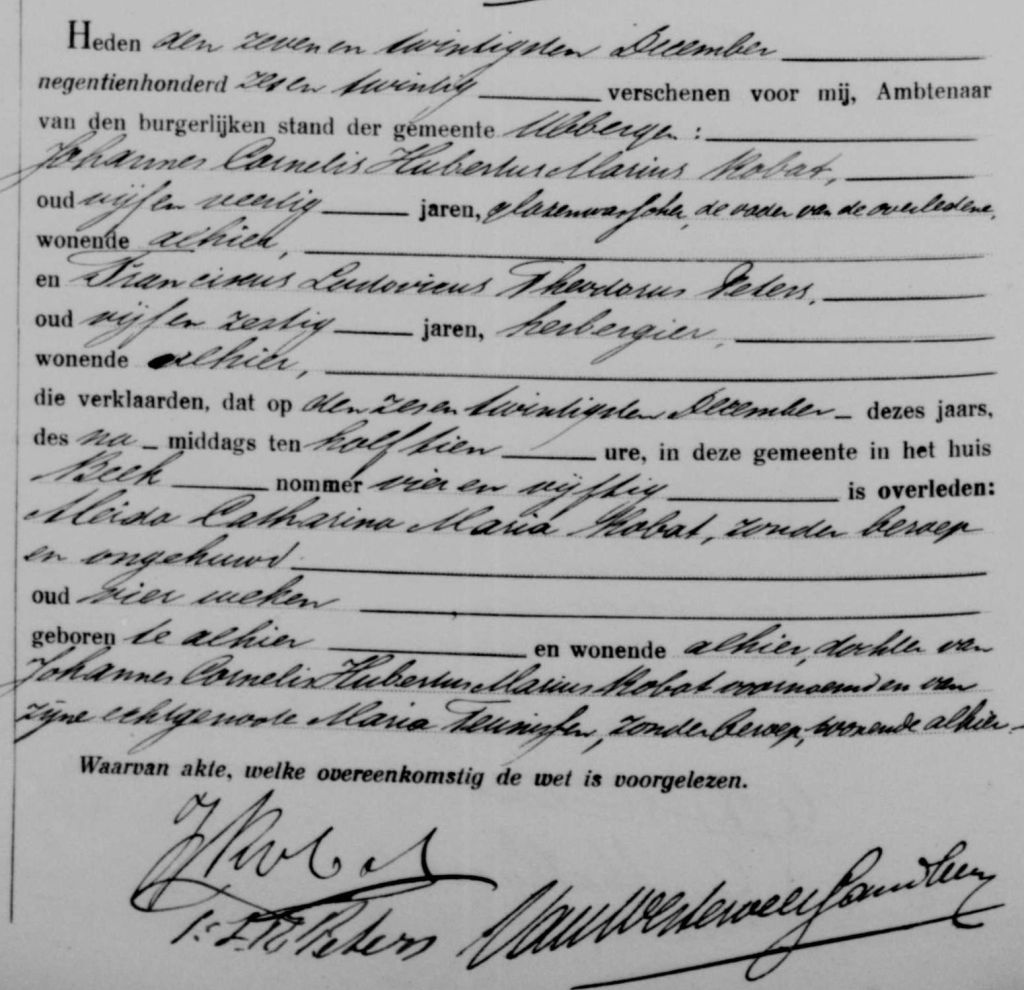 Heden den zeven en twintigsten December
negentienhonderd zes en twintig verschenen voor mij, Ambtenaar
van den burgerlijken stand der gemeente Ubbergen:
Johannes Cornelis Hubertus Marius Kobat,
oud vijf en veertig jaren, glazenwasscher, de vader van de overledene,
wonende alhier,
en Franciscus Ludovicus Theodorus Peters,
oud vijf en zestig jaren, herbergier,
wonende alhier,
die verklaarden, dat op den zes en twintigsten December dezes jaars,
des na middags ten half tien ure, in deze gemeente in het huis
Beek nommer vier en vijftig is overleden:
Aleida Catharina Maria Kobat, zonder beroep
en ongehuwd
oud vier weken
geboren te alhier en wonende alhier, dochter van
Johannes Cornelis Hubertus Marius Kobat voornoemd en van
zijne echtgenoote Maria Teunissen, zonder beroep, wonende alhier
Waarvan akte, welke overeenkomstig de wet is voorgelezen.
J Kobat
Peters